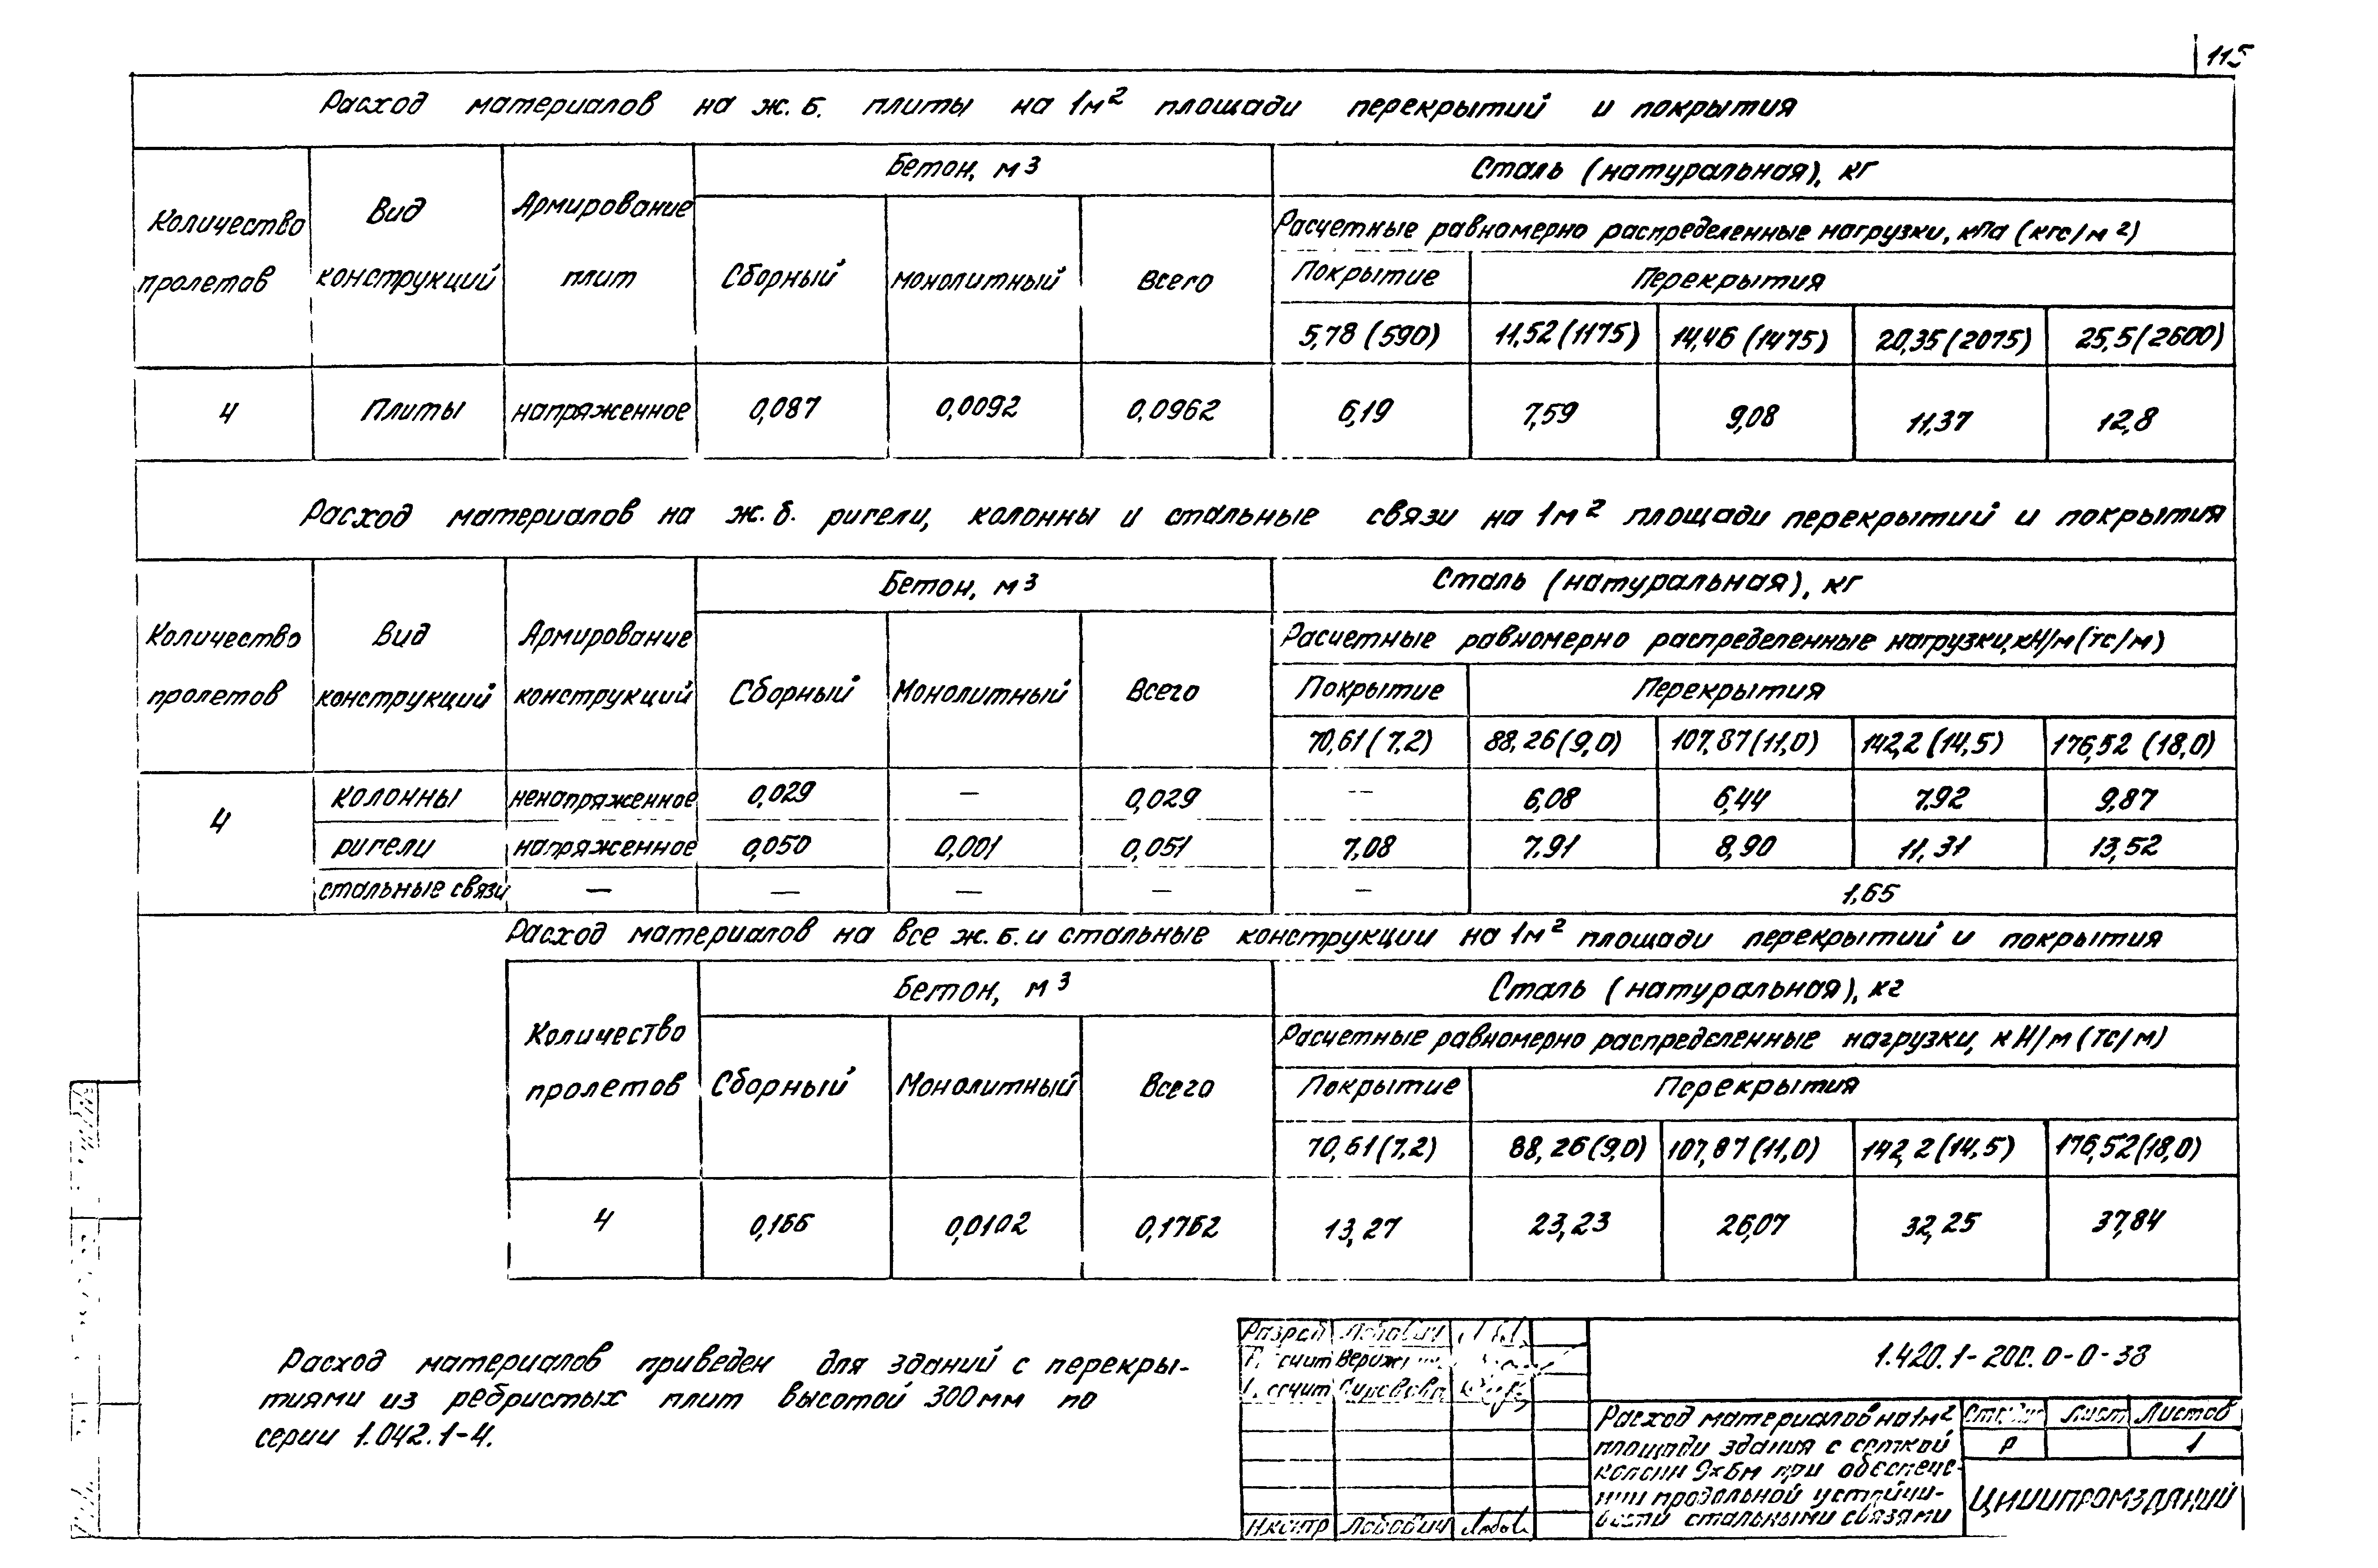 115
Расход материалов на ж.б. плиты на 1м² площади перекрытий и покрытия
Количество пролетов
Вид конструкций
Армирование плит
Бетон, м³
Сталь (натуральная), кг
Расчетные равномерно распределенные нагрузки, кПа (кгс/м²)
Сборный
монолитный
Всего
Покрытие
Перекрытия
5,78 (590) 11,52 (1175) 14,46 (1475) 20,35 (2075) 25,5 (2600)
4 Плиты напряженное 0,087 0,0092 0,0962 6,19 7,59 9,08 11,37 12,8
Расход материалов на ж.б. ригели, колонны и стальные связи на 1м² площади перекрытий и покрытия
Количество пролетов
Вид конструкций
Армирование конструкций
Бетон, м³
Сталь (натуральная), кг
Расчетные равномерно распределенные нагрузки, кН/м (тс/м)
Сборный
Монолитный
Всего
Покрытие
Перекрытия
70,61 (7,2) 88,26 (9,0) 107,87 (11,0) 142,2 (14,5) 176,52 (18,0)
4
колонны ненапряженное 0,029 — 0,029 -- 6,08 6,44 7,92 9,87
ригели напряженное 0,050 0,001 0,051 7,08 7,91 8,90 11,31 13,52
стальные связи — — — — — 1,65
Расход материалов на все ж.б. и стальные конструкции на 1м² площади перекрытий и покрытия
Количество пролетов
Бетон, м³
Сталь (натуральная), кг
Расчетные равномерно распределенные нагрузки, кН/м (тс/м)
Сборный
Монолитный
Всего
Покрытие
Перекрытия
70,61 (7,2) 88,26 (9,0) 107,87 (11,0) 142,2 (14,5) 176,52 (18,0)
4 0,166 0,0102 0,1762 13,27 23,23 26,07 32,25 37,84
Расход материалов приведен для зданий с перекры-
тиями из ребристых плит высотой 300 мм по
серии 1.042.1-4.
Разраб Лобович
Н.контр Лобович
1.420.1-20с.0-0-38
Расход материалов на 1м²
площади здания с сеткой
колонн 9×6м при обеспече-
нии продольной устойчи-
вости стальными связями
Стадия Лист Листов
Р 1
ЦНИИПРОМЗДАНИЙ